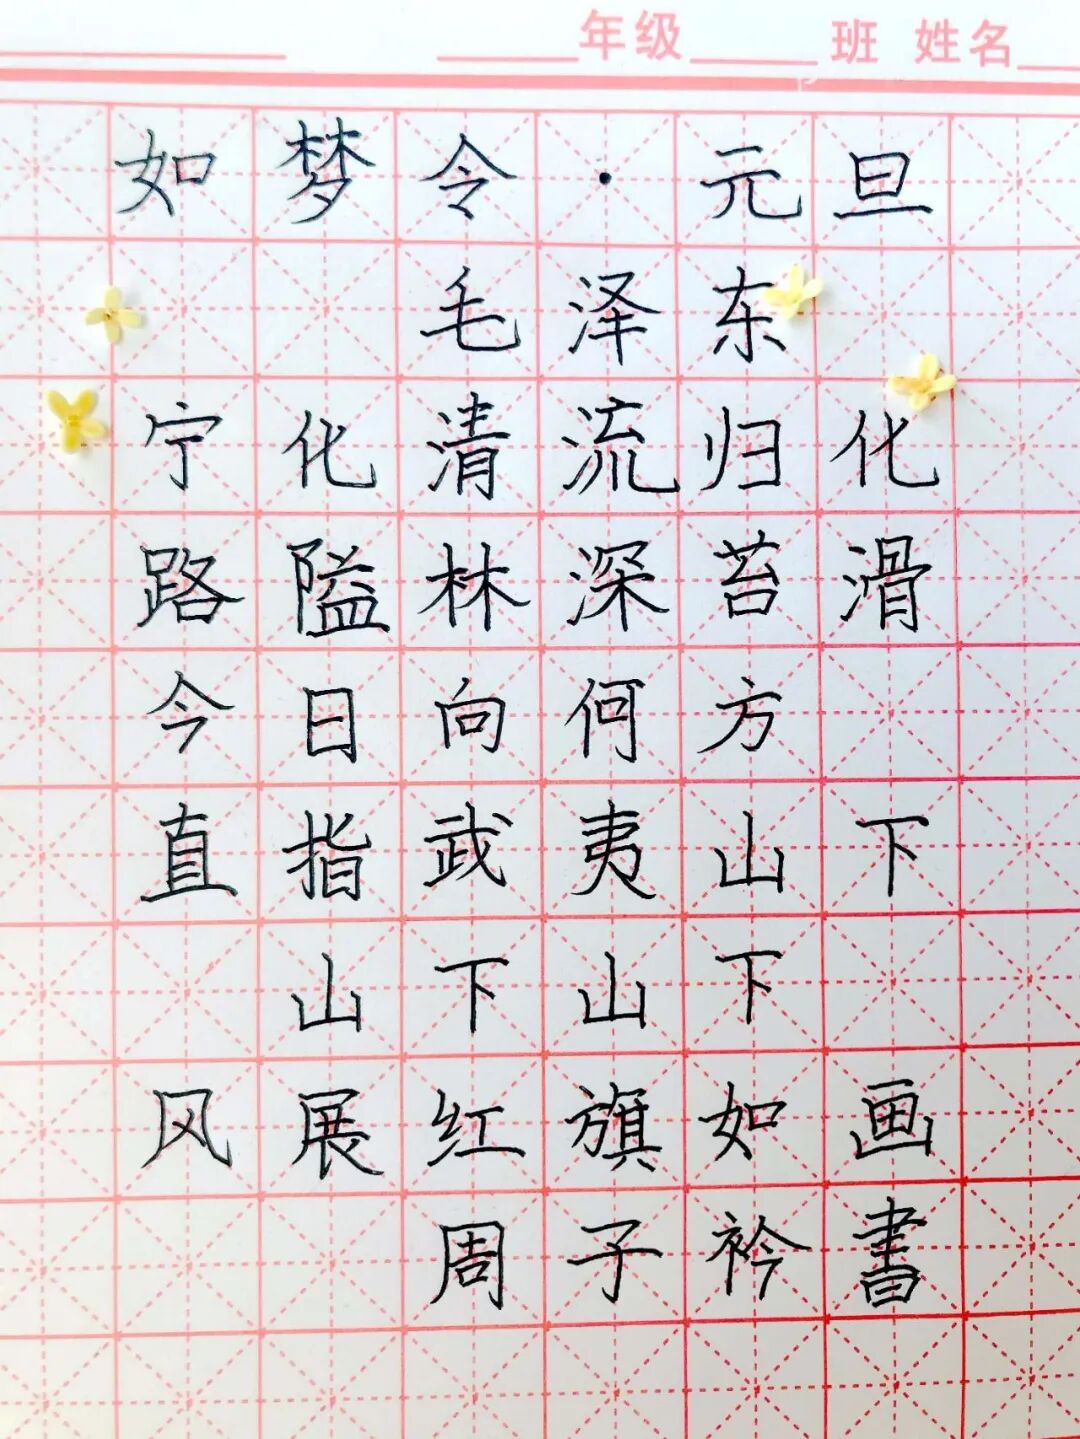 年级 班 姓名
如梦令·元旦
毛泽东
宁化清流归化
路隘林深苔滑
今日向何方
直指武夷山下
山下山下
风展红旗如画
周子衿書